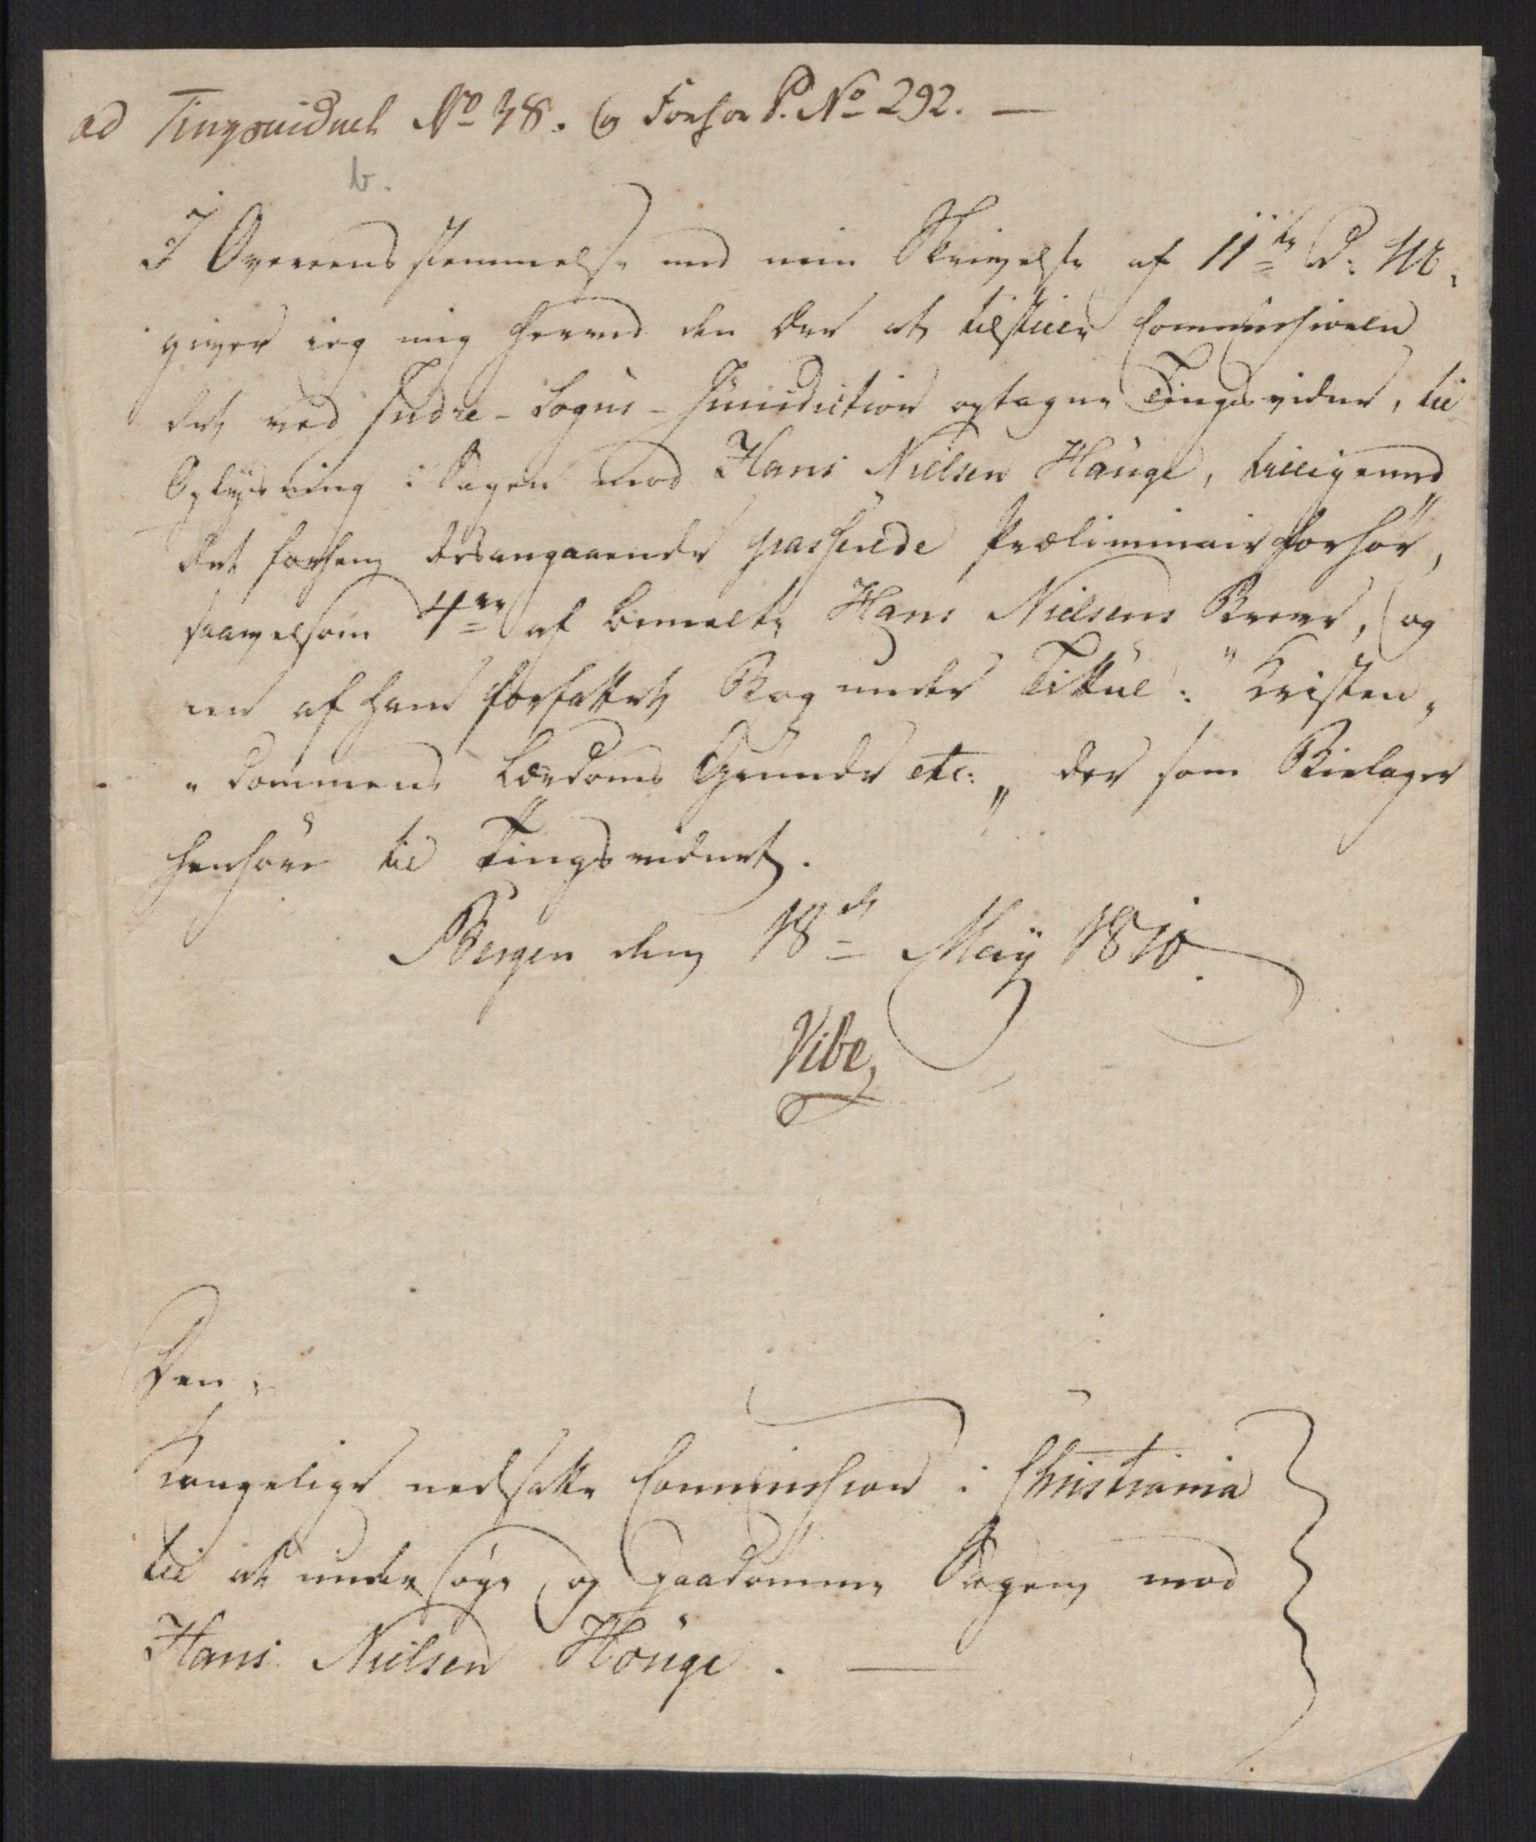 ad Tingsvidnet No 38. og Forhør P. No 292. —
b.
I Overeensstemmelse med min Skrivelse af 11te d: M:
giver ieg mig herved den Ære at tilstille Commissionen
det ved Indre-Sogns-Jurisdiction optagne Tingsvidne, til
Oplysning i Sagen mod Hans Nielsen Hauge, tilligemed
det forhen desangaaende passerede Præliminairforhør,
saavelsom 4re af bemelte Hans Nielsens Breve, og
en af ham forfattet Bog under Tittul: "Kristen„
„dommens Lærdoms Grunde etc:„ der som Bielager
henhøre til Tingsvidnet.
Bergen den 18de May 1810.
Vibe,
Den
Kongelige nedsatte Commission i Christiania
til at undersøge og paadømme Sagen mod
Hans Nielsen Houge. —